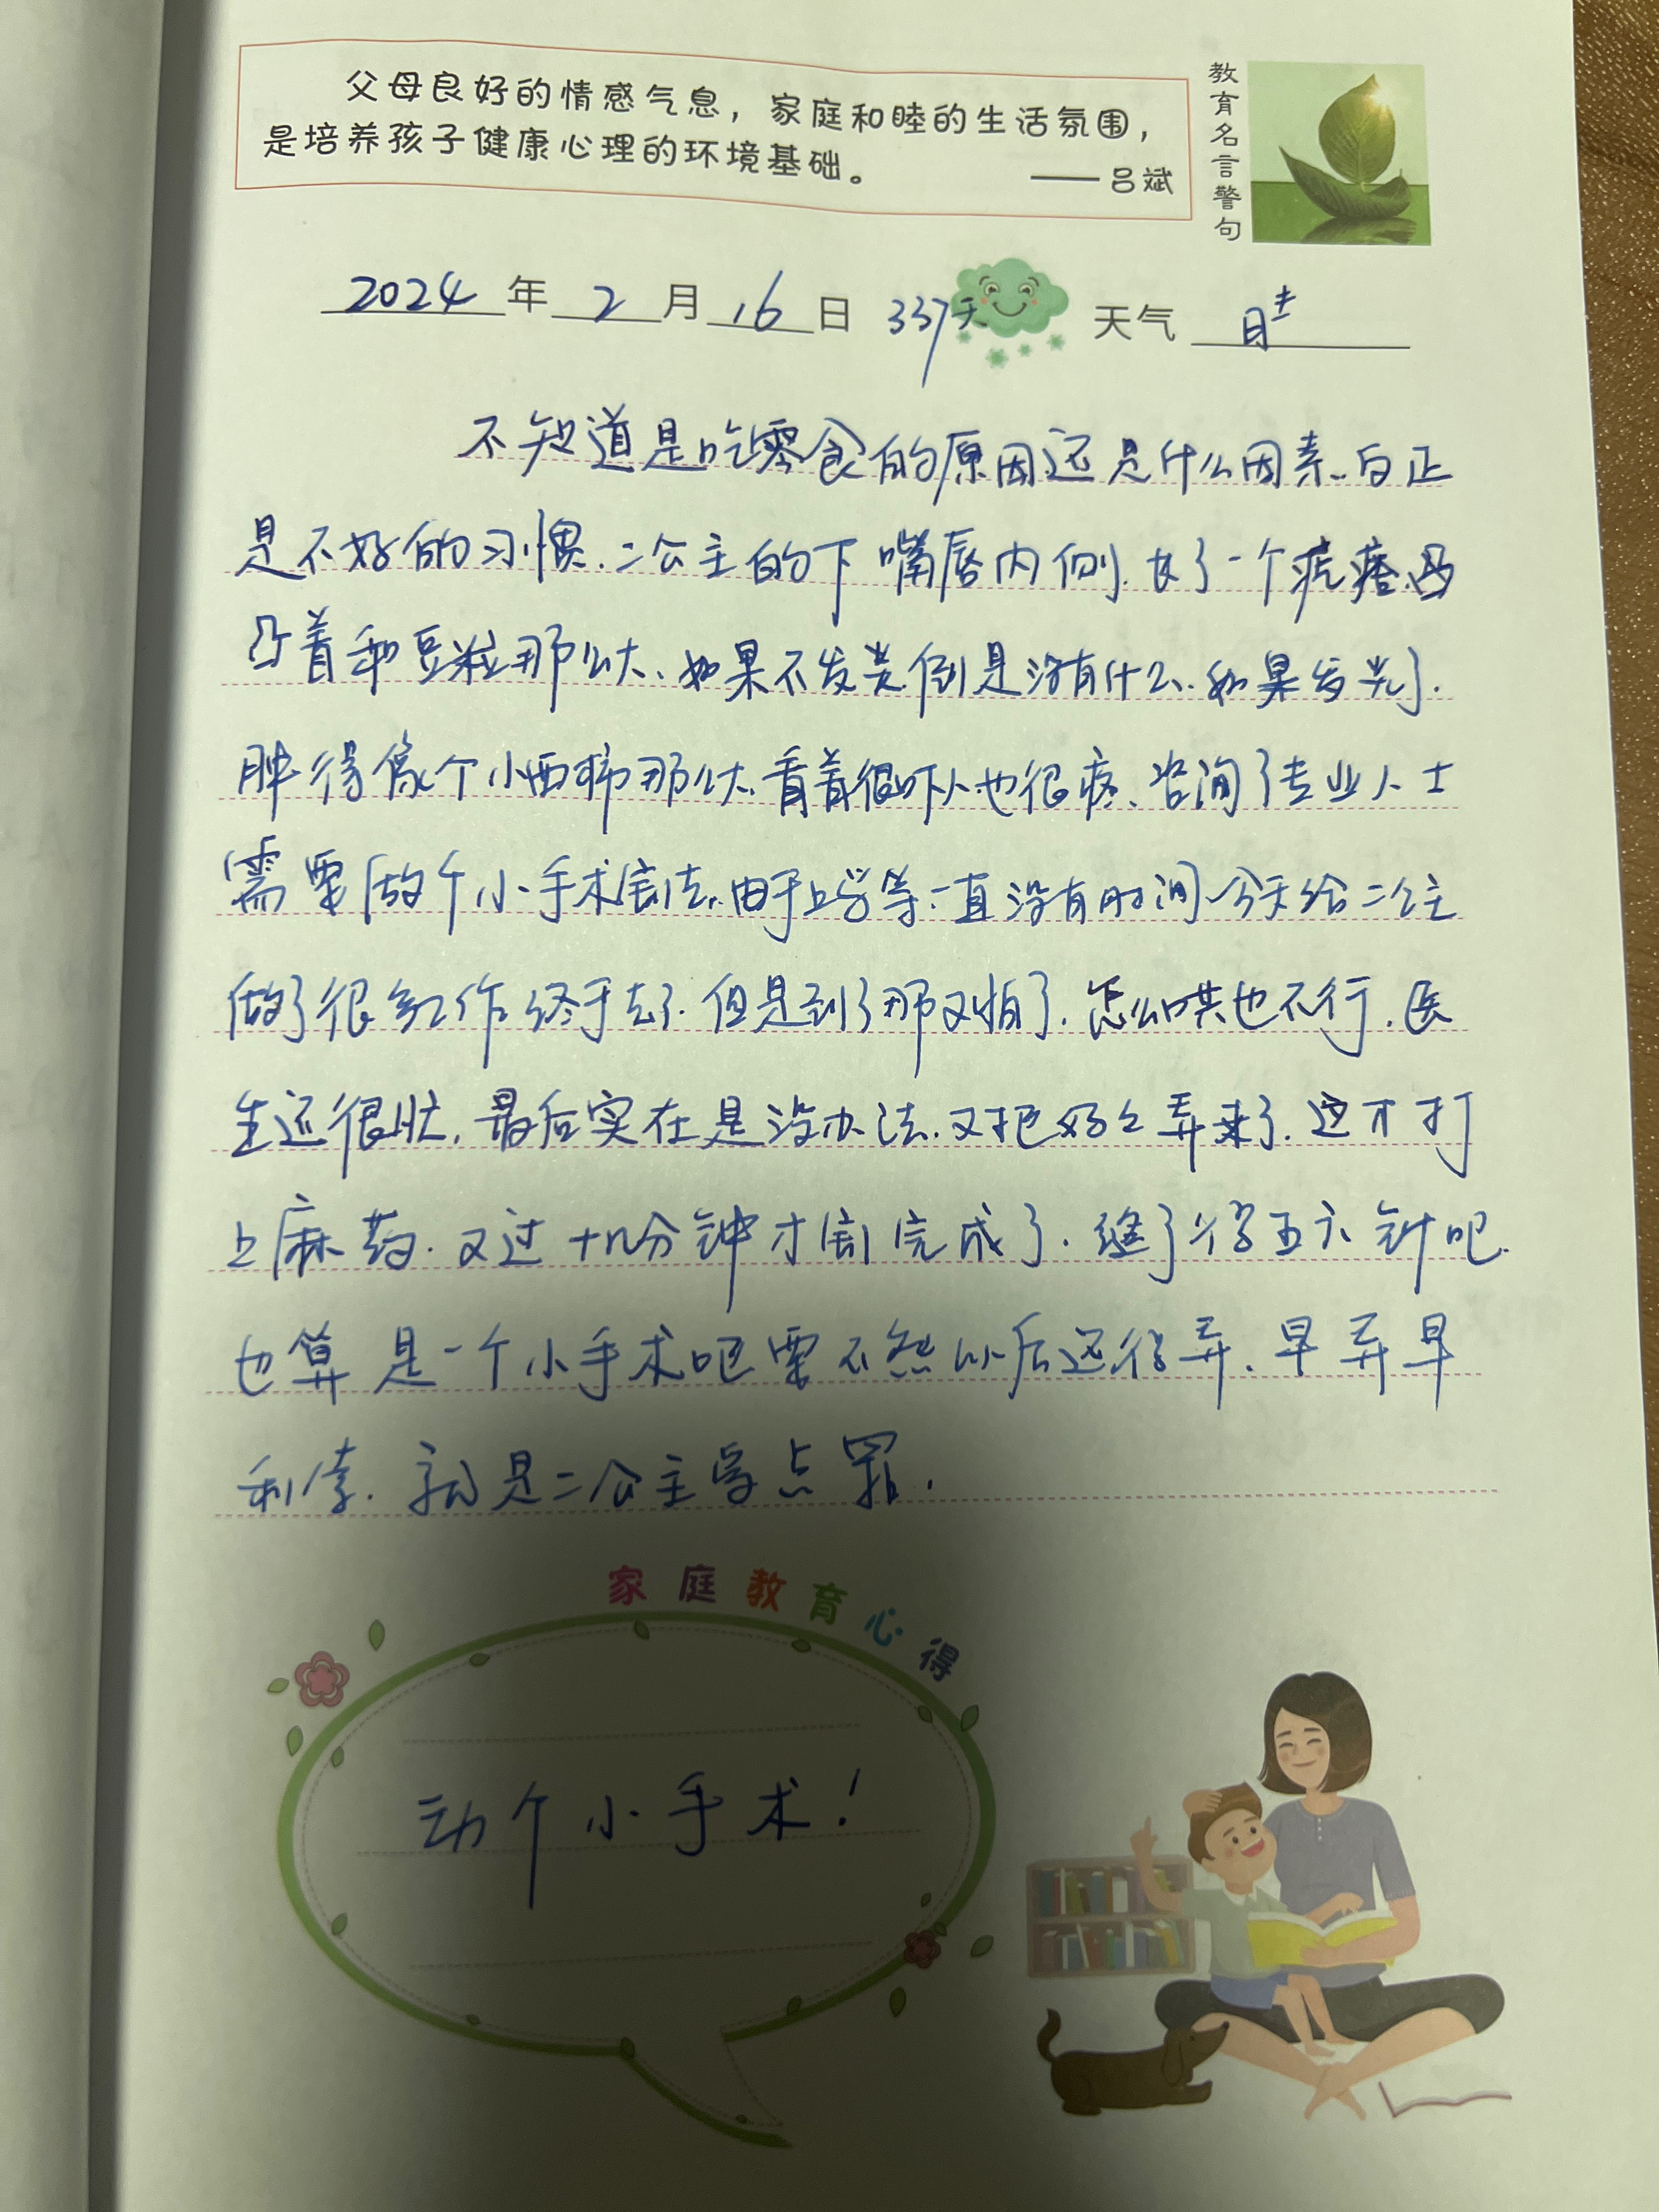 父母良好的情感气息，家庭和睦的生活氛围，
是培养孩子健康心理的环境基础。
——吕斌
教育名言警句
2024年2月16日 337天 天气
不知道是吃零食的原因还是什么因素、白正
是不好的习惯.二公主的下嘴唇内侧.长了一个疙瘩.
凸着和豆粒那么大、如果不发炎倒是没有什么、如果发炎了.
肿得像个小西柿那么大、看着很吓人也很疼、咨询了专业人士
需要做个小手术割去.由于上学等一直没有时间.今天给二公主
做了很多工作终于去了.但是到了那又怕了.怎么哄也不行.医
生还很忙.最后实在是没办法.又把好么弄来了.这才打
上麻药.又过十几分钟才割完成了.缝了得五六针吧.
也算是一个小手术吧要不然以后还得弄.早弄早
利索.就是二公主受点罪.
家庭教育心得
动个小手术!